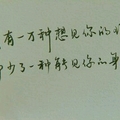 有一万种想见你的
少了一种能见你的